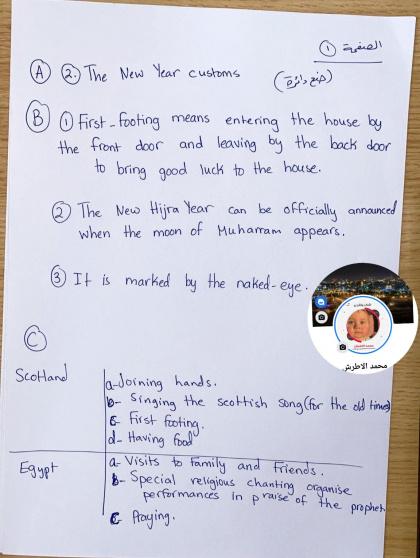 الصفحة ①
Ⓐ ② The New Year customs (ضع دائرة)
Ⓑ ① First-footing means entering the house by
the front door and leaving by the back door
to bring good luck to the house.
② The New Hijra Year can be officially announced
when the moon of Muharram appears.
③ It is marked by the naked-eye.
محمد الاطرش
Ⓒ
Scotland
a- Joining hands.
b- Singing the scottish song (for the old times)
c- First footing.
d- Having food
Egypt
a- Visits to family and friends.
b- Special religious chanting organise
performances in praise of the prophet
c- Praying.